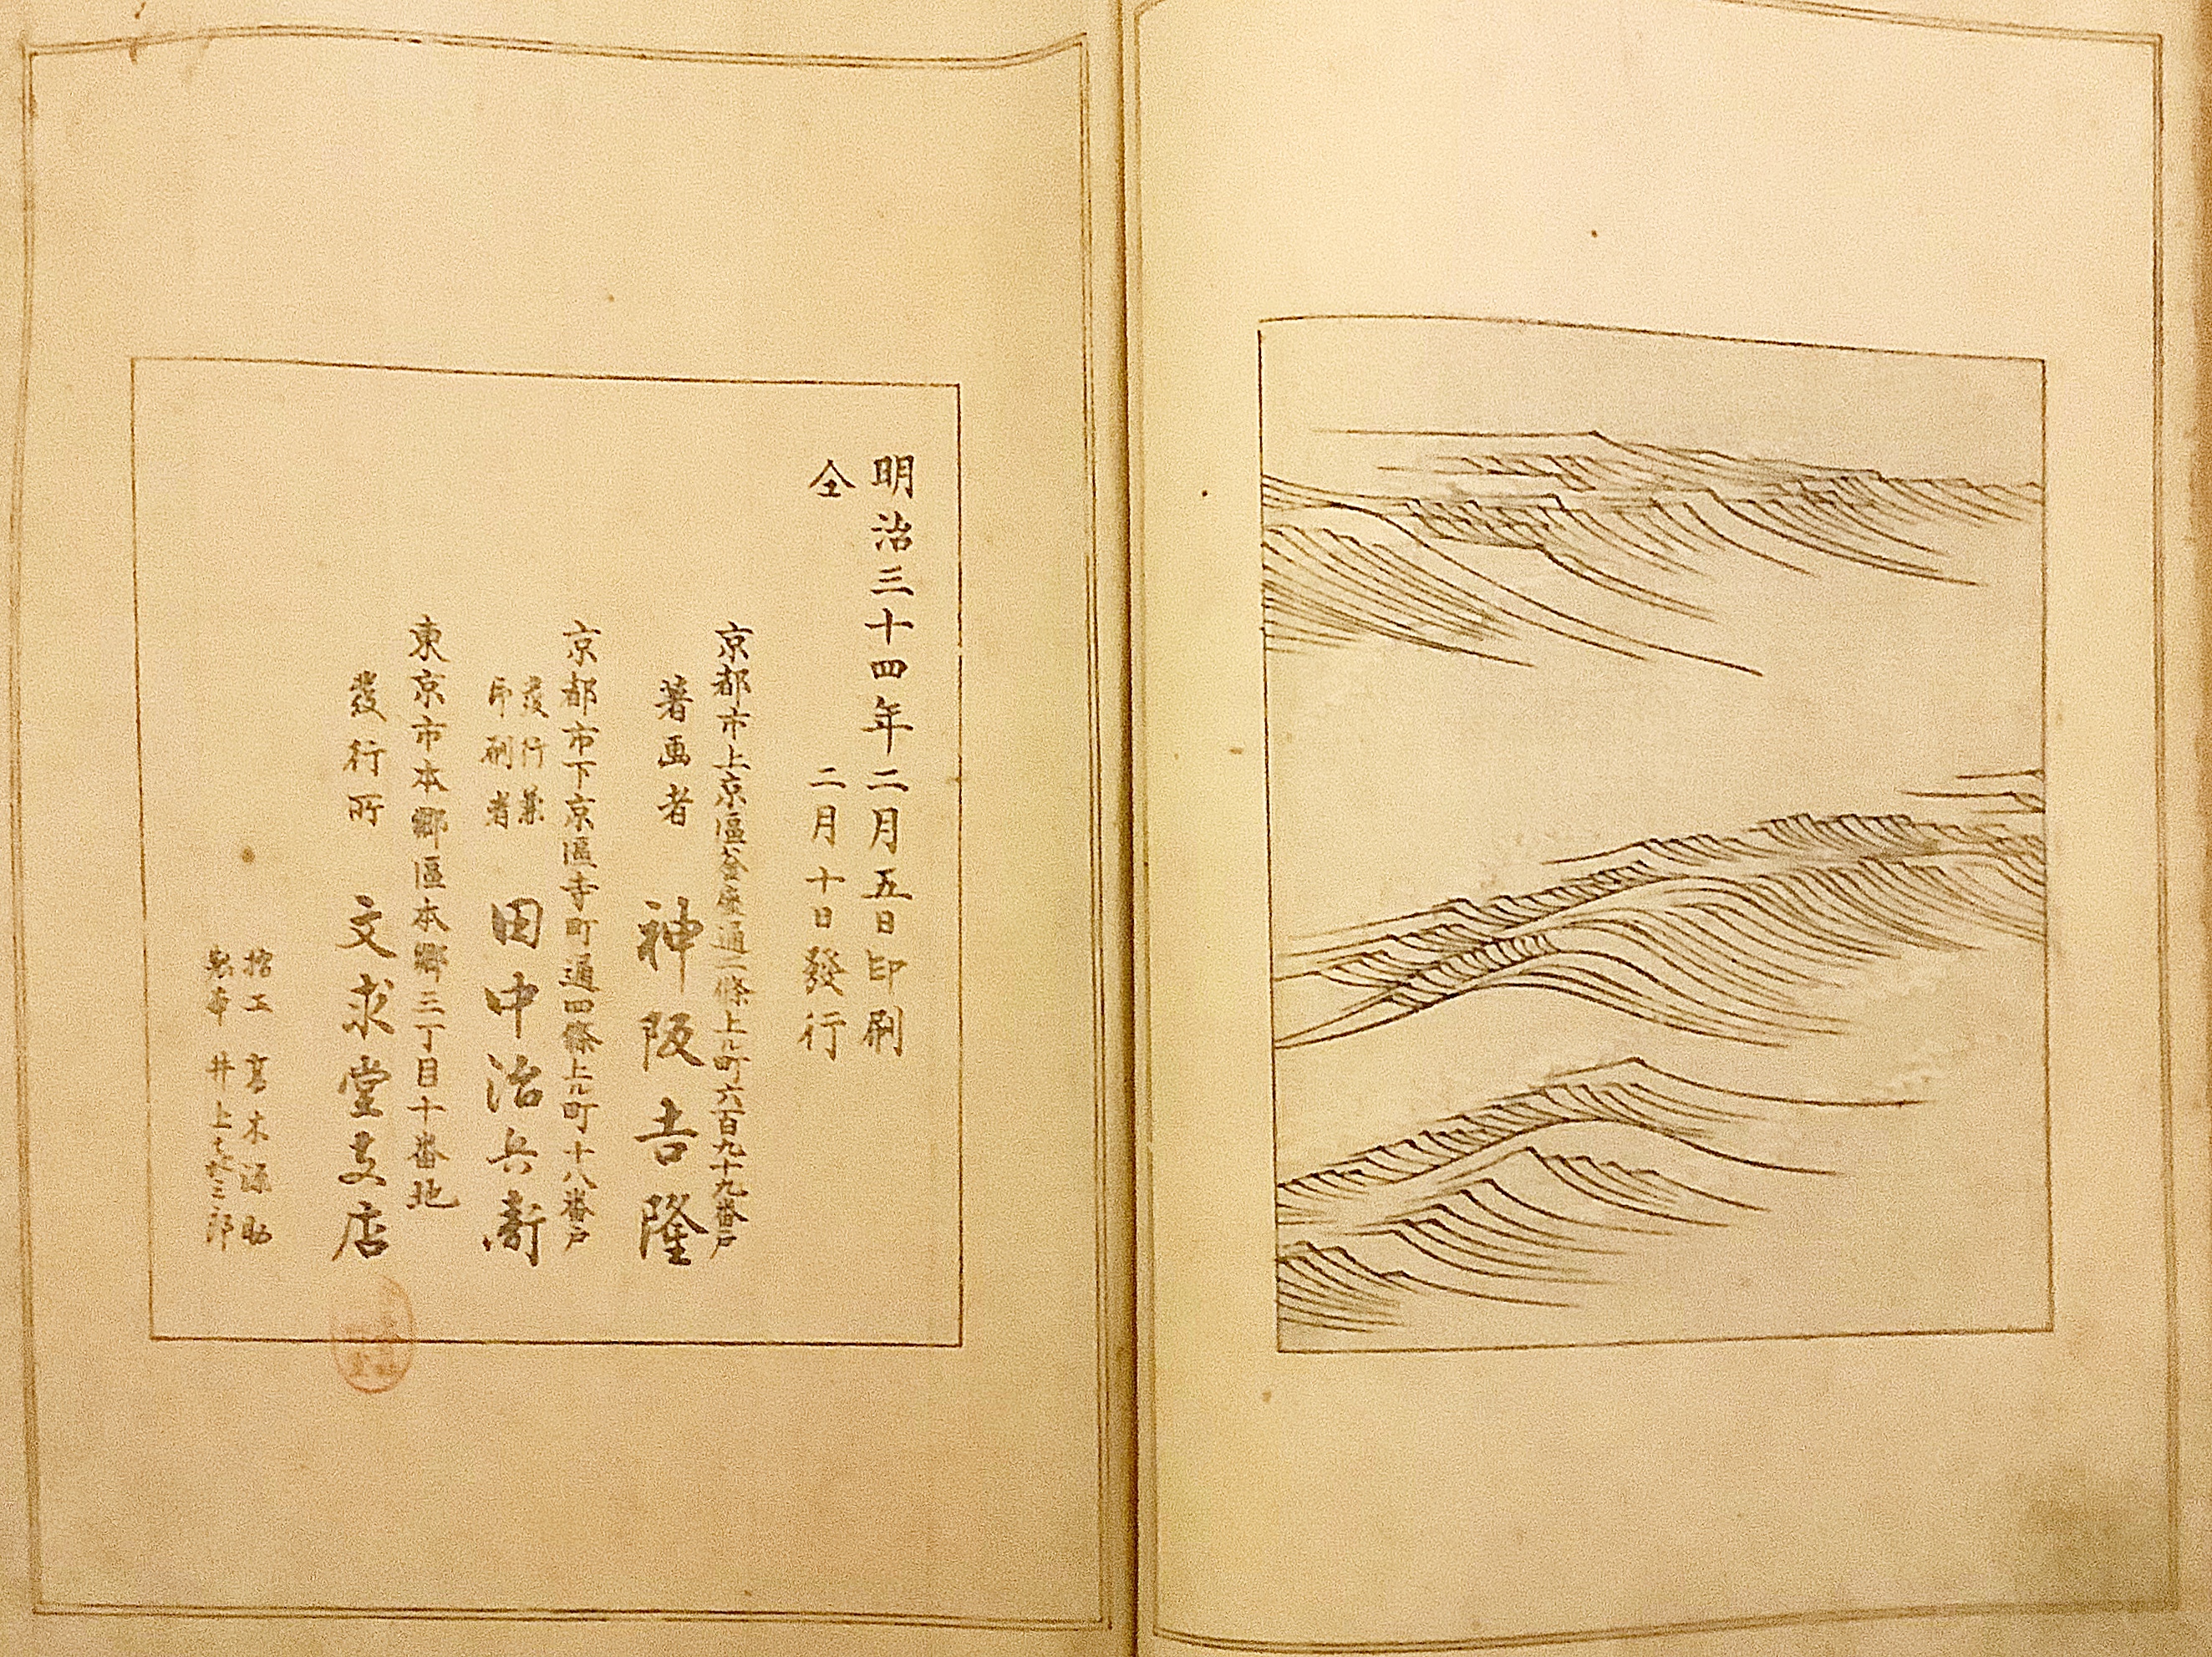 明治三十四年二月五日印刷
仝 二月十日發行
京都市上京區釜座通二條上ル町六百九十九番戸
著画者 神阪吉隆
京都市下京區寺町通四條上ル町十八番戸
發行兼
印刷者 田中治兵衞
東京市本郷區本郷三丁目十番地
發行所 文求堂支店
摺工 高木源助
製本 井上 三郎